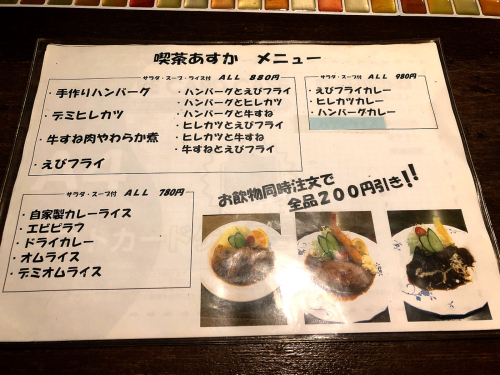 喫茶あすか メニュー
サラダ・スープ・ライス付 ALL 880円
・手作りハンバーグ
・デミヒレカツ
・牛すね肉やわらか煮
・えびフライ
・ハンバーグとえびフライ
・ハンバーグとヒレカツ
・ハンバーグと牛すね
・ヒレカツとえびフライ
・ヒレカツと牛すね
・牛すねとえびフライ
サラダ・スープ付 ALL 980円
・えびフライカレー
・ヒレカツカレー
・ハンバーグカレー
サラダ・スープ付 ALL 780円
・自家製カレーライス
・エビピラフ
・ドライカレー
・オムライス
・デミオムライス
お飲物同時注文で
全品200円引き!!